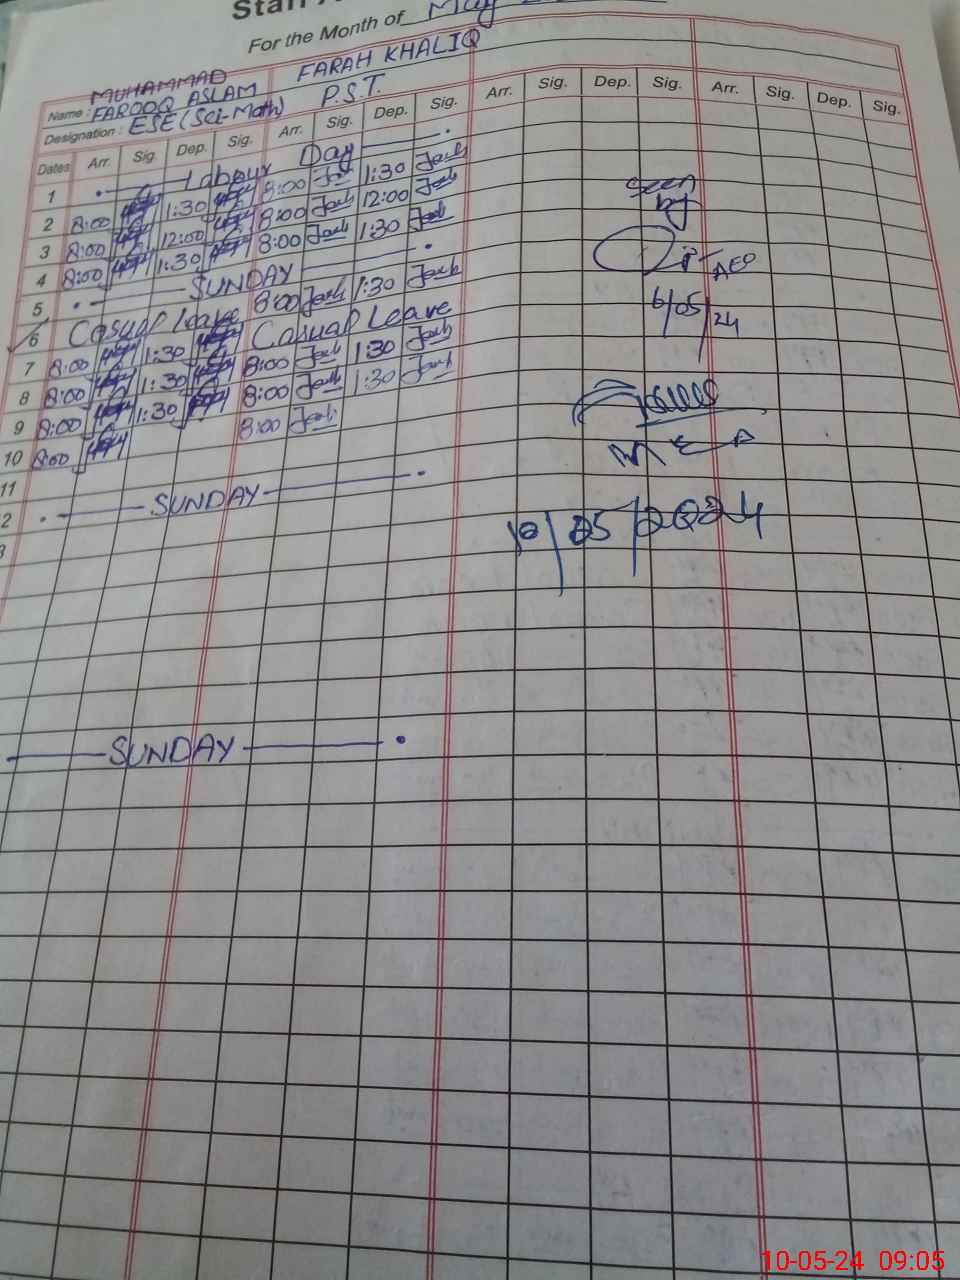 For the Month of May
MUHAMMAD
Name : FAROOQ ASLAM FARAH KHALIQ
Designation : ESE (Sci-Math) P.S.T.
Dates Arr. Sig. Dep. Sig. Arr. Sig. Dep. Sig. Arr. Sig. Dep. Sig. Arr. Sig. Dep. Sig.
1 Labour Day
2 8:00 1:30 8:00 1:30
3 8:00 12:00 8:00 12:00
4 8:00 1:30 8:00 1:30
5 SUNDAY
6 Casual Leave 8:00 1:30
7 8:00 1:30 Casual Leave
8 8:00 1:30 8:00 1:30
9 8:00 1:30 8:00 1:30
10 8:00 8:00
11
2 SUNDAY
3
SUNDAY
seen
by
AEO
6/05/24
10/05/2024
10-05-24 09:05